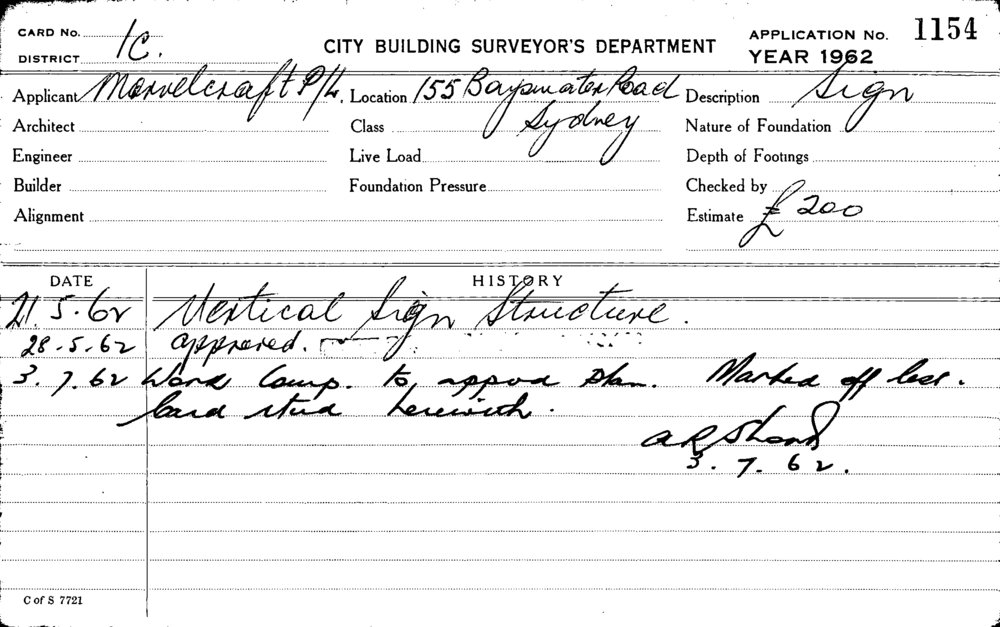 CARD No. 1C.
DISTRICT
CITY BUILDING SURVEYOR'S DEPARTMENT
APPLICATION No. 1154
YEAR 1962
Applicant Marvelcraft P/L. Location 155 Bayswater Road Description Sign
Architect Class Sydney Nature of Foundation
Engineer Live Load Depth of Footings
Builder Foundation Pressure Checked by
Alignment Estimate £200
DATE HISTORY
21.5.62 Vertical Sign Structure.
28.5.62 approved.
3.7.62 Work Comp. to, appvd plan. Marked off
card herewith.
3.7.62.
C of S 7721